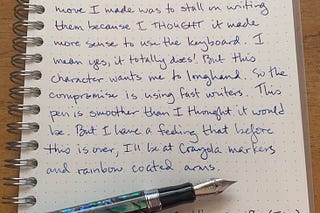 move I made was to stall on writing
them because I THOUGHT it made
more sense to use the keyboard. I
mean yes, it totally does! But this
character wants me to longhand. So the
compromise is using fast writers. This
pen is smoother than I thought it would
be. But I have a feeling that before
this is over, I'll be at Crayola markers
and rainbow coated arms.